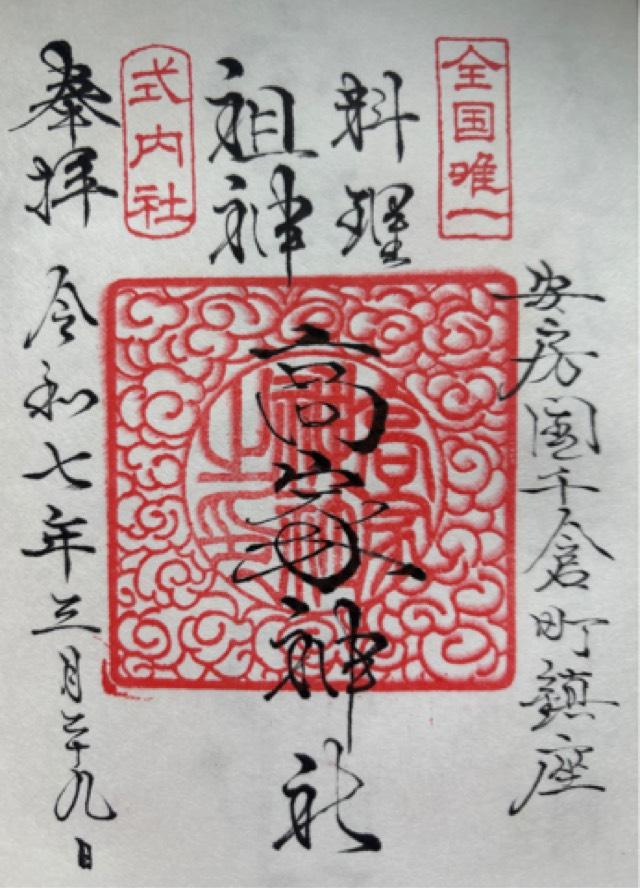 全国唯一
安房国千倉町鎮座
料理
祖神
高家神社
式内社
奉拝
令和七年三月二十九日